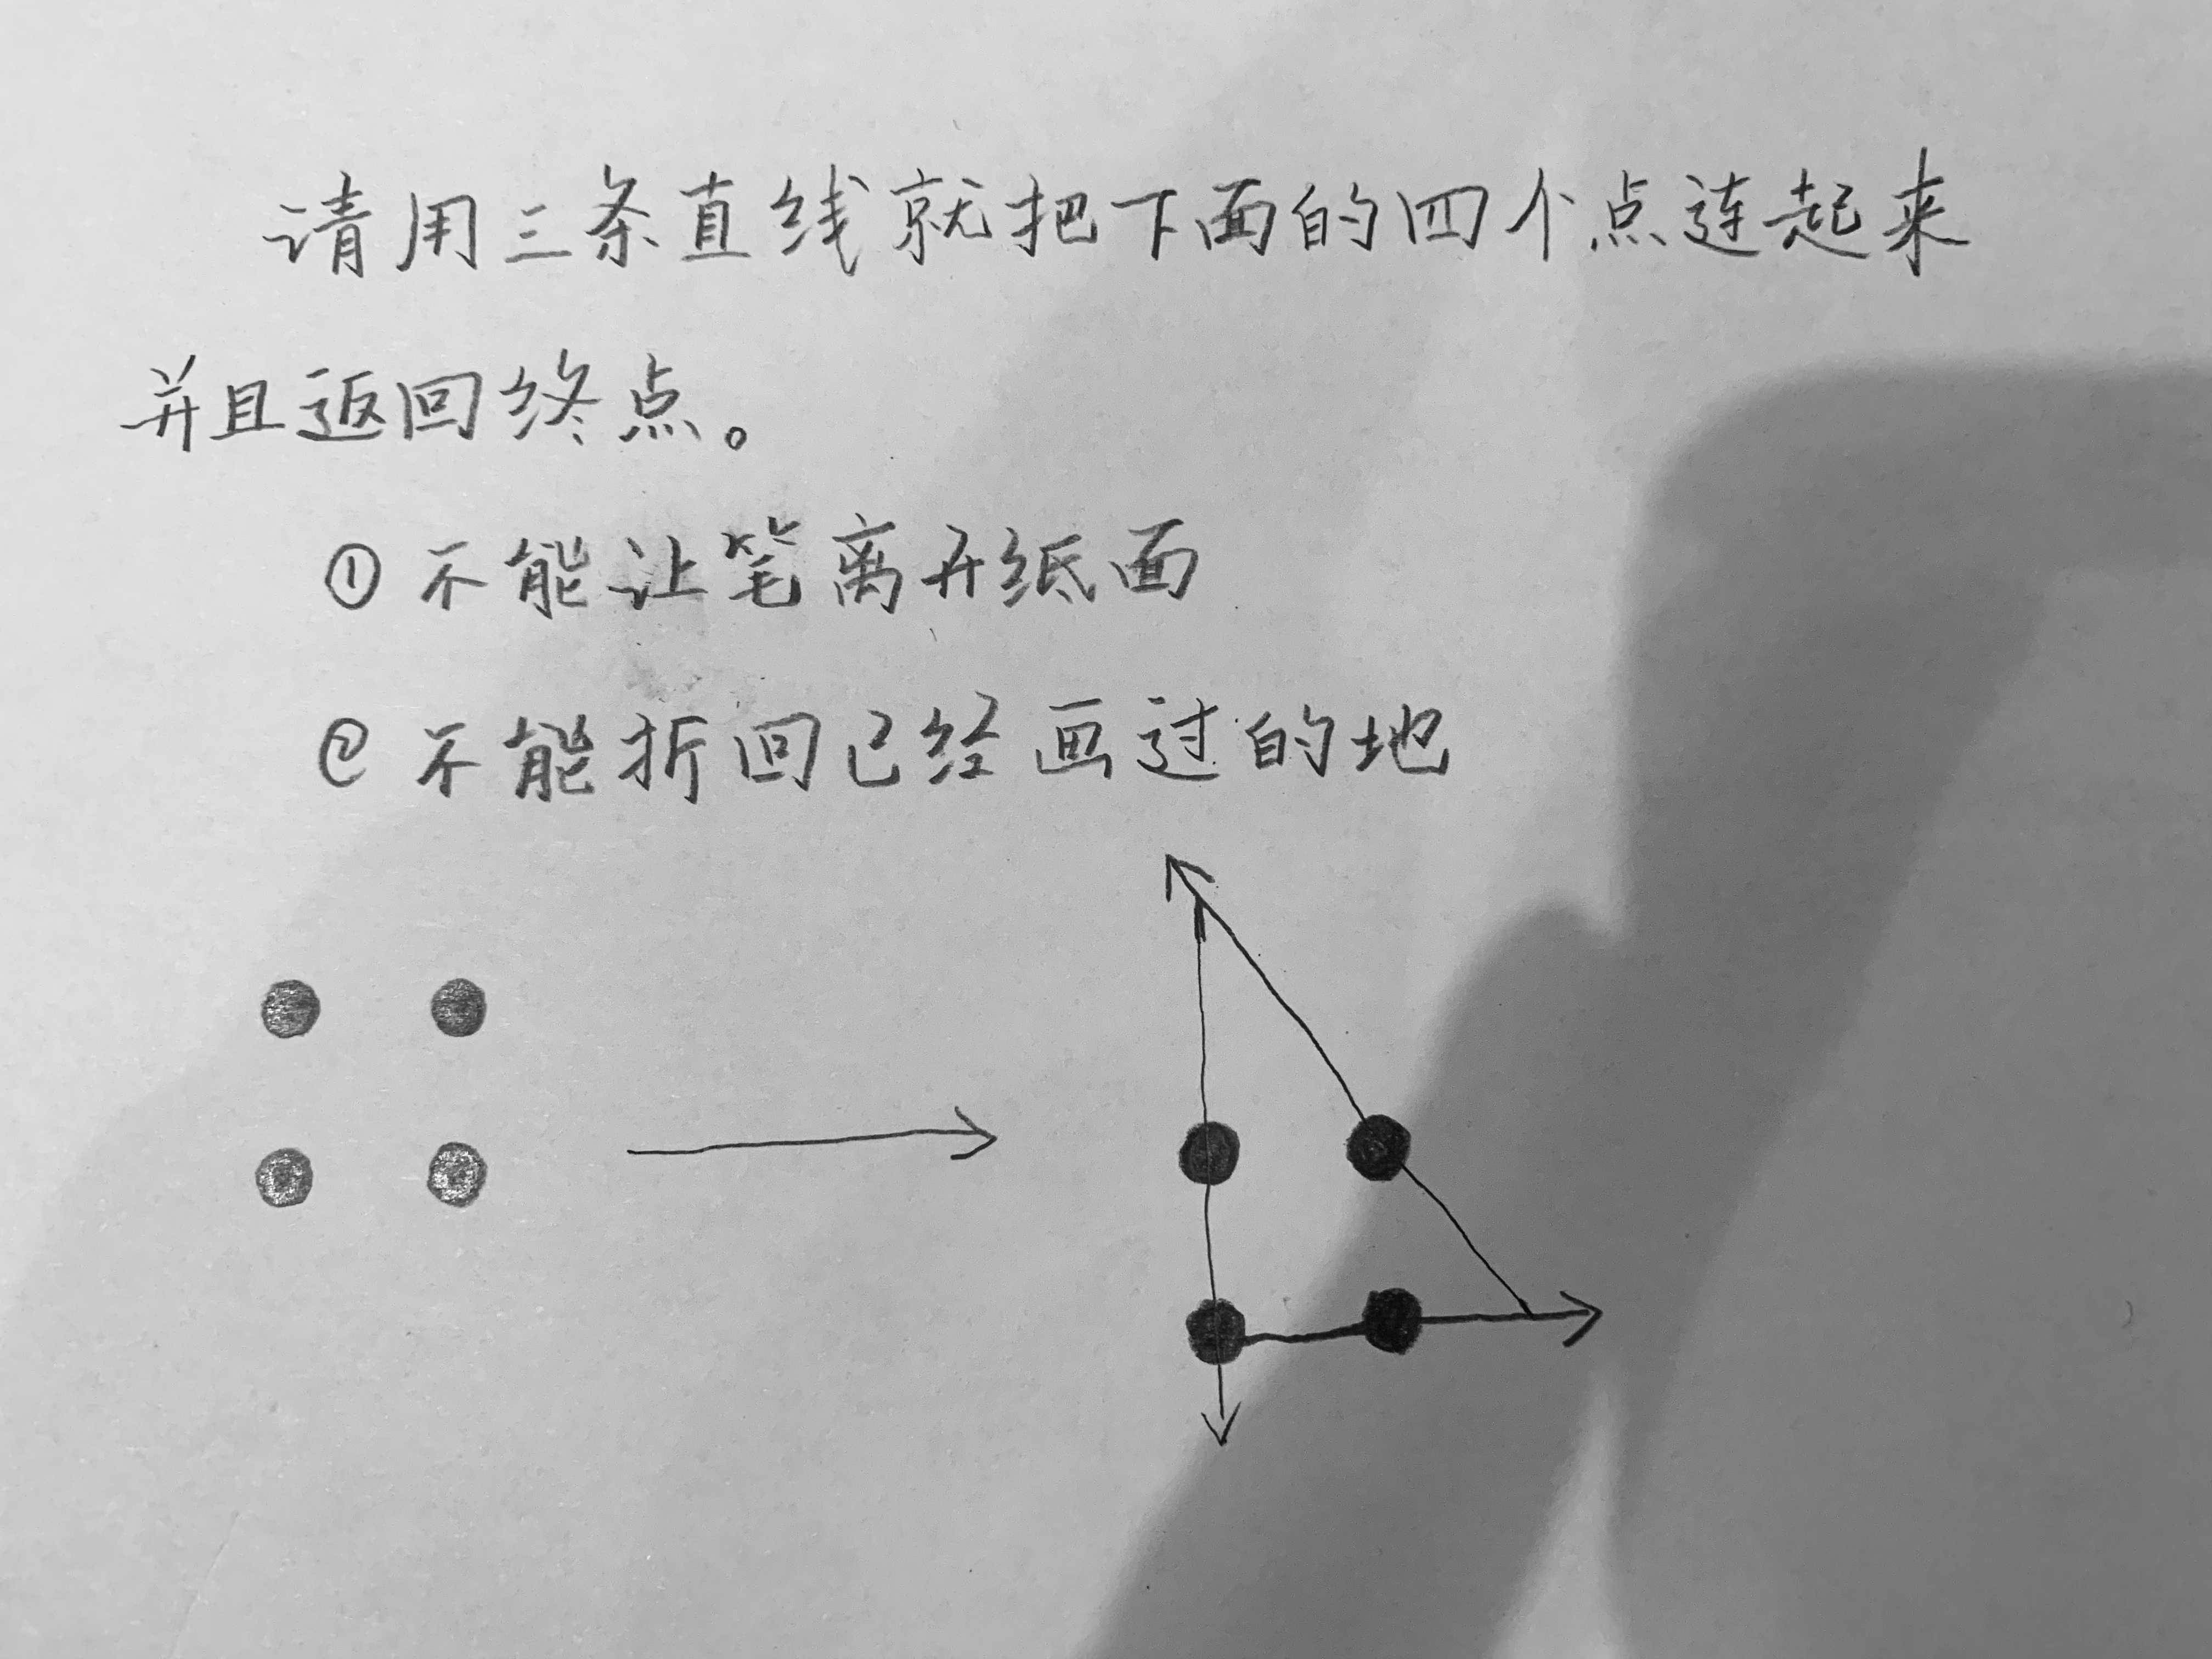 请用三条直线就把下面的四个点连起来
并且返回终点。
①不能让笔离开纸面
②不能折回已经画过的地